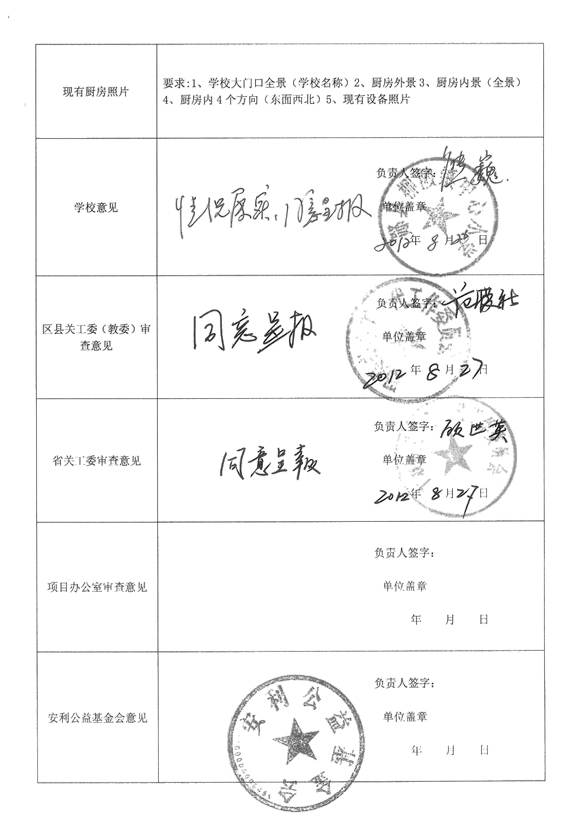 现有厨房照片
要求:1、学校大门口全景（学校名称）2、厨房外景 3、厨房内景（全景）
4、厨房内 4 个方向（东面西北）5、现有设备照片
学校意见
情况属实，同意呈报
负责人签字：
单位盖章
2012年 8月 日
区县关工委（教委）审
查意见
同意呈报
负责人签字：
单位盖章
2012 8月27日
省关工委审查意见
同意呈報
负责人签字： 顾世英
单位盖章
2012年 8月27日
项目办公室审查意见
负责人签字：
单位盖章
年 月 日
安利公益基金会意见
安利公益基金会
负责人签字：
单位盖章
年 月 日